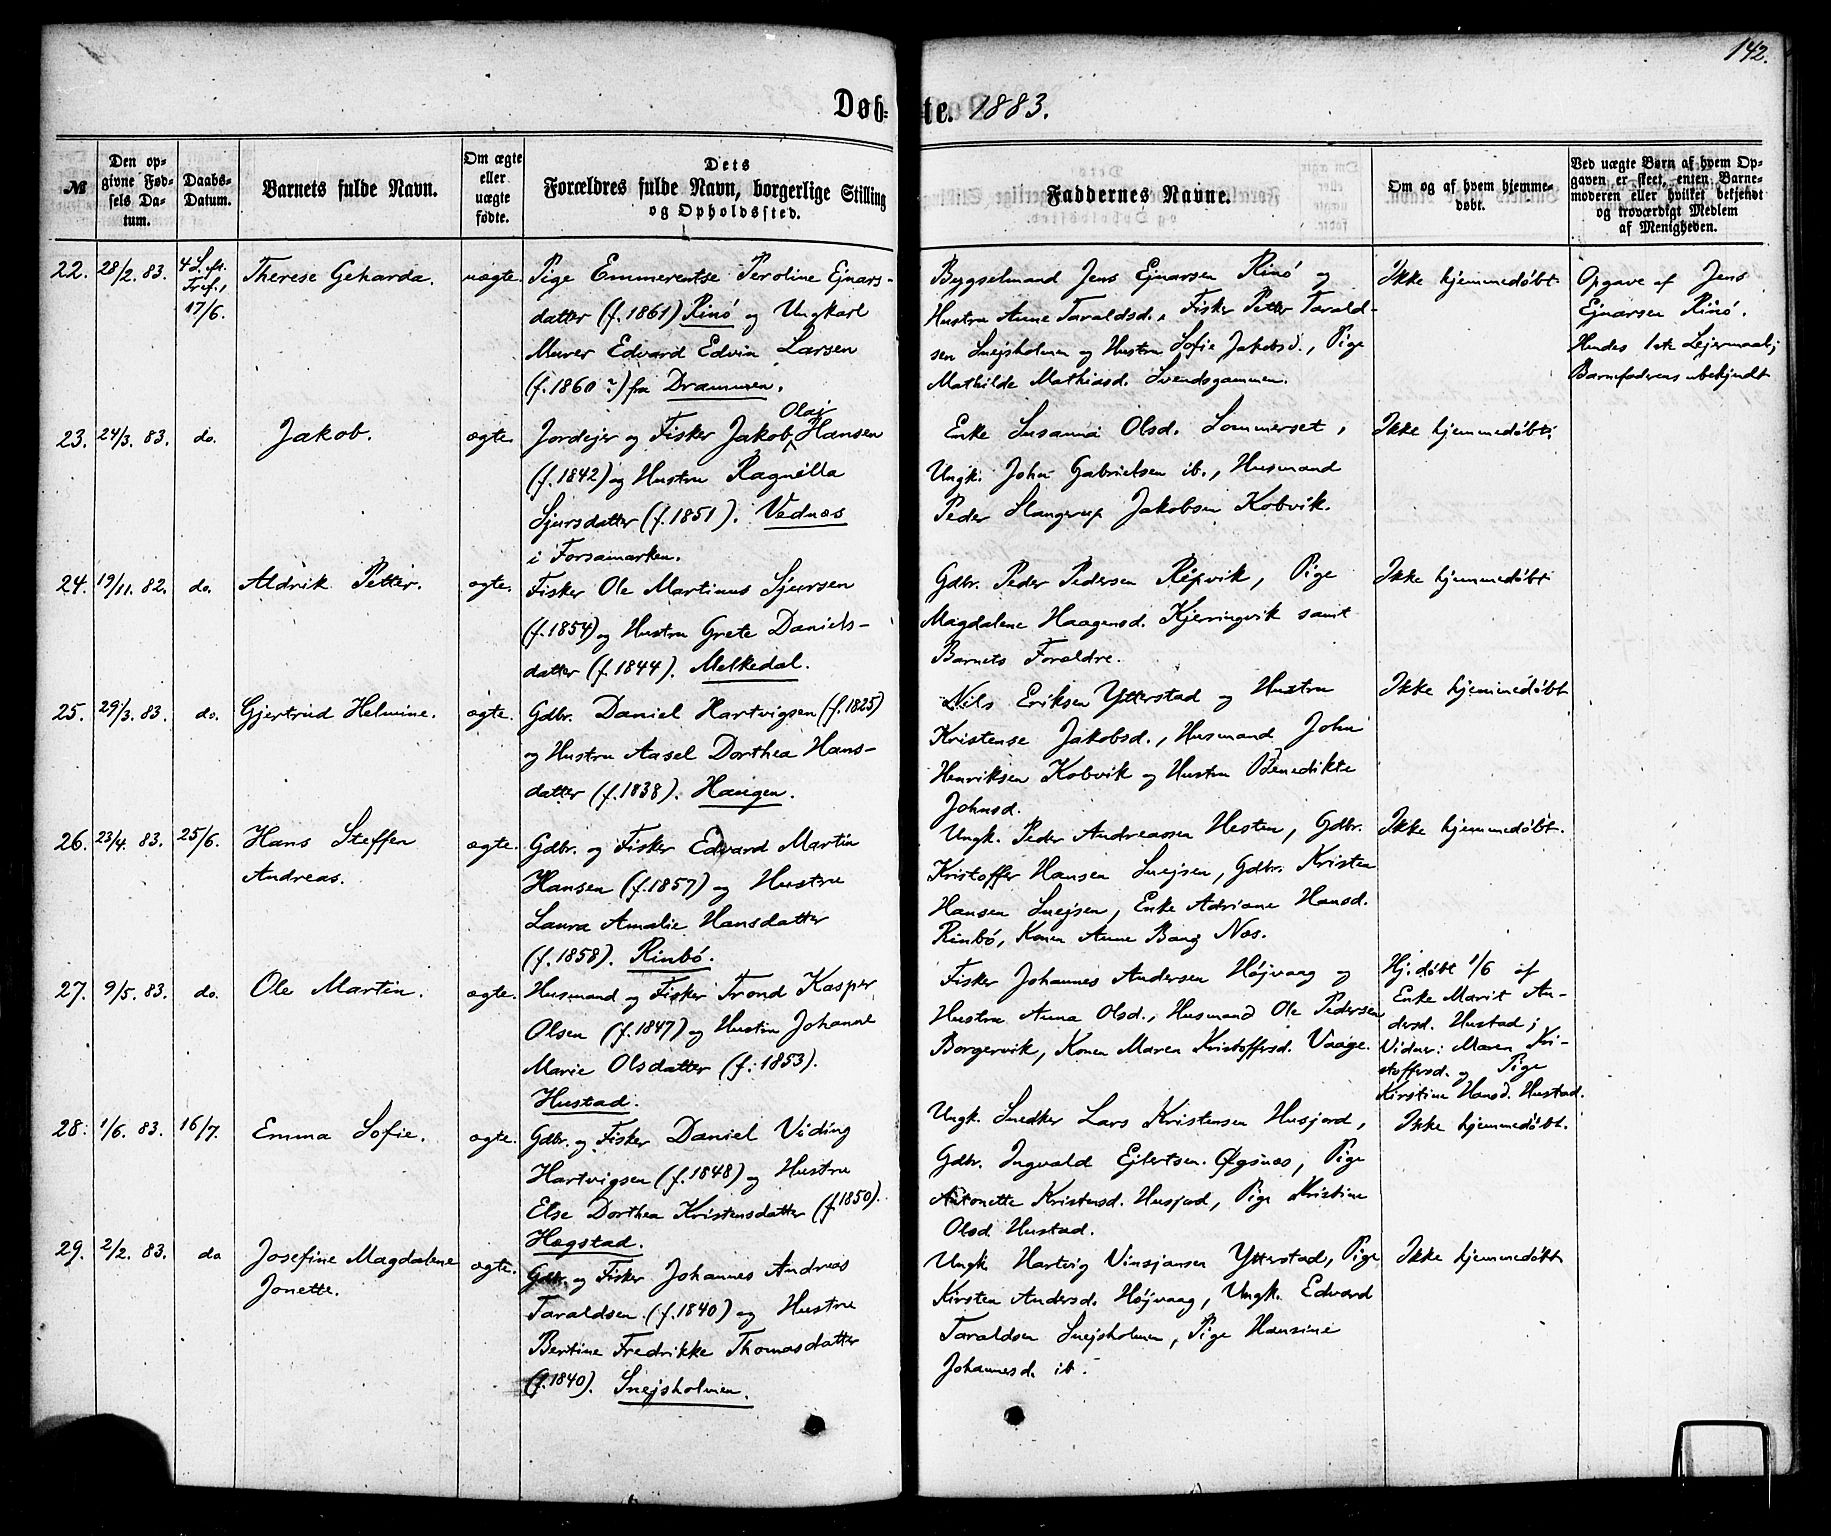 142.
Døb-te. 1883.
№
Den opgivne Fødsels Datum.
Daabs-Datum.
Barnets fulde Navn.
Om ægte eller uægte fødte.
Dets Forældres fulde Navn, borgerlige Stilling og Opholdssted.
Faddernes Navne.
Om og af hvem hjemmedøbt.
Ved uægte Børn af hvem Opgaven er skeet, enten Barnemoderen eller hvilket bekjendt og troværdigt Medlem af Menigheden.
22. 28/2. 83. 4 S. eft. Tref., 17/6. Therese Geharda. uægte.
Pige Emmerentse Peroline Ejnars-
datter (f. 1861) Rinö og Ungkarl
Murer Edvard Edvin Larsen
(f. 1860?) fra Drammen.
Bygselmand Jens Ejnarsen Rinö og
Hustru Anne Taraldsd., Fisker Petter Tarald-
sen Snejsholmen og Hustru Sofie Jakobsd., Pige
Mathilde Mathiasd. Svendsgammen.
Ikke hjemmedøbt
Opgave af Jens
Ejnarsen Rinö.
Hendes 1ste Lejermaal;
Barnefaderens ubekjendt
23. 24/3. 83. do. Jakob. ægte.
Jordejer og Fisker Jakob Olai Hansen
(f. 1842) og Hustru Ragnilla
Sjursdatter (f. 1851). Vednæs
i Forsamarken.
Enke Susanna Olsd. Sommerset,
Ungk. John Gabrielsen ib., Husmand
Peder Slangerup Jakobsen Kobvik.
Ikke hjemmedøbt.
24. 19/11. 82. do. Aldrik Petter. ægte.
Fisker Ole Martinus Sjursen
(f. 1854) og Hustru Grete Daniels-
datter (f. 1844). Melkedal.
Gdbr. Peder Pedersen Repvik, Pige
Magdalene Haagensd. Kjerringvik samt
Barnets Forældre.
Ikke hjemmedøbt
25. 29/3. 83. do. Gjertrud Helmine. ægte.
Gdbr. Daniel Hartvigsen (f. 1825)
og Hustru Aasel Dorthea Hans-
datter (f. 1838). Haugen.
Nils Eriksen Ytterstad og Hustru
Kristense Jakobsd., Husmand John
Henriksen Kobvik og Hustru Benedikte
Johnsd.
Ikke hjemmedøbt
26. 23/4. 83. 25/6. Hans Steffen
Andreas. ægte.
Gdbr. og Fisker Edvard Martin
Hansen (f. 1857) og Hustru
Laura Amalie Hansdatter
(f. 1858). Rinbö.
Ungk. Peder Andreassen Hesten, Gdbr.
Kristoffer Hansen Snejsen, Gdbr. Kristen
Hansen Snejsen, Enke Adriane Hansd.
Rinbö, Konen Anne Bang Næs.
Ikke hjemmedøbt.
27. 9/5. 83. do. Ole Martin. ægte.
Husmand og Fisker Trond Kasper
Olsen (f. 1847) og Hustru Johanne
Marie Olsdatter (f. 1853).
Hustad.
Fisker Johannes Andersen Højvaag og
Hustru Anna Olsd., Husmand Ole Pedersen
Borgervik, Konen Maren Kristoffersd. Vaage.
Hj. døbt 1/6 af
Enke Marit An-
dersd. Hustad;
Vidner: Maren Kri-
stoffersd. og Pige
Kirstine Hansd. Hustad.
28. 1/6. 83. 16/7. Emma Sofie. ægte.
Gdbr. og Fisker Daniel Viding
Hartvigsen (f. 1848) og Hustru
Else Dorthea Kristensdatter (f. 1850).
Hægstad.
Ungk. Snedker Lars Kristensen Husjord,
Gdbr. Ingvald Ejlertsen Øgsnæs, Pige
Antonette Kristensd. Husjord, Pige Kristine
Olsd Hustad.
Ikke hjemmedøbt.
29. 2/2. 83. do Josefine Magdalene
Jonette. ægte.
Gdbr. og Fisker Johannes Andreas
Taraldsen (f. 1840) og Hustru
Bertine Fredrikke Thomasdatter
(f. 1840). Snejsholmen.
Ungk Hartvig Vinsjansen Ytterstad, Pige
Kirsten Andersd. Højvaag, Ungk. Edvard
Taraldsen Snejsholmen, Pige Hansine
Johannesd. ib.
Ikke hjemmedøbt